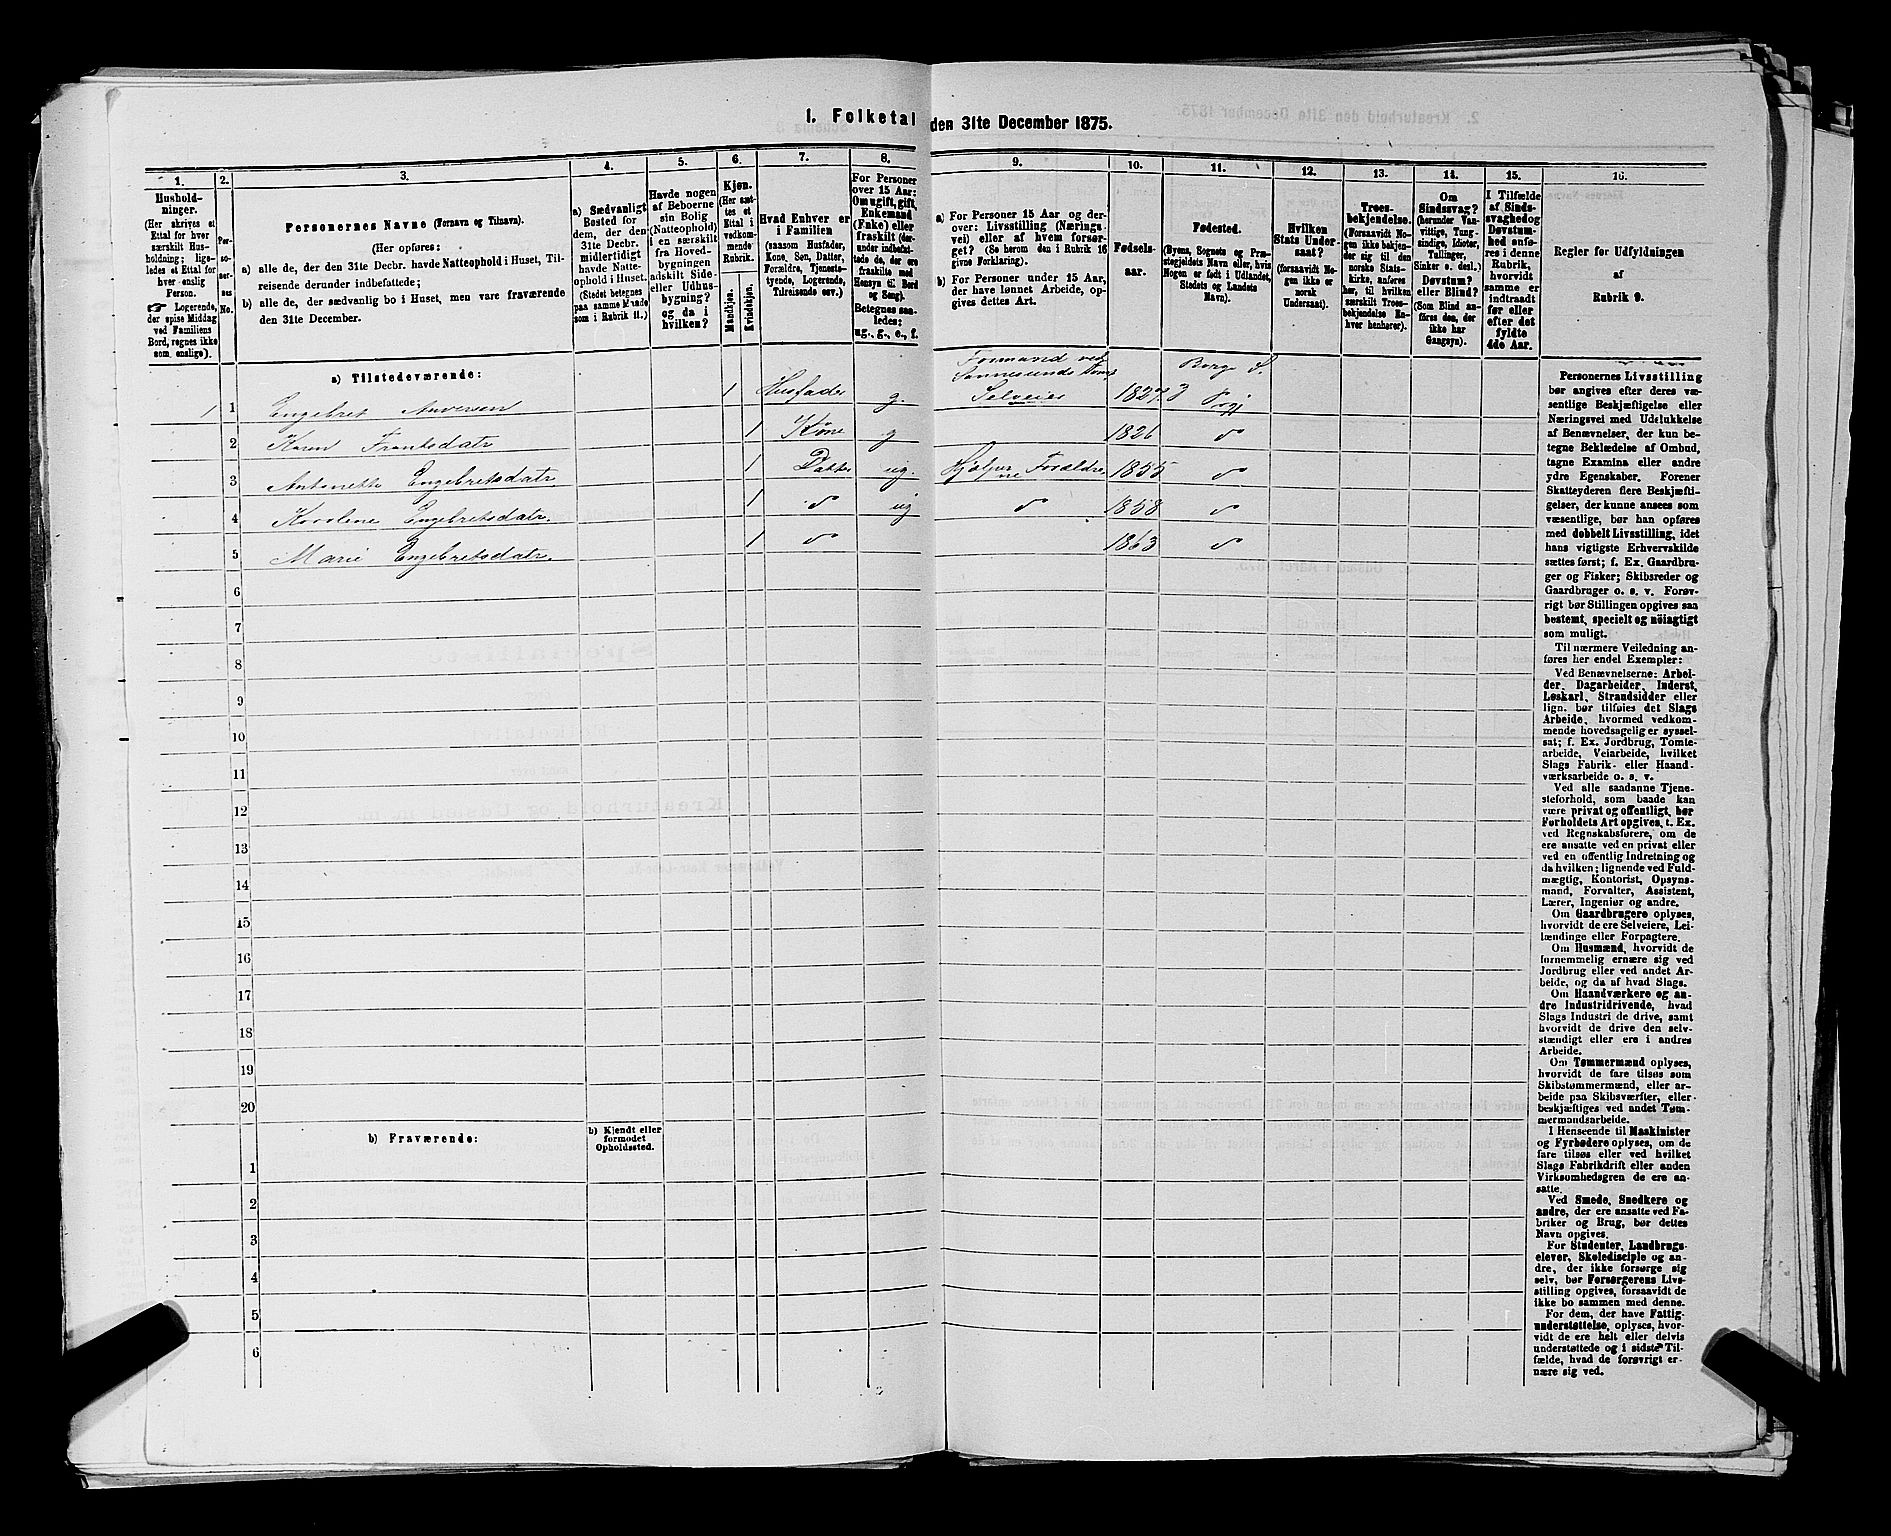 1. Folketal den 31te December 1875.
1.
Hushold-
ninger.
(Her skrives et
Ettal for hver
særskilt Hus-
holdning; lige-
ledes et Ettal for
hver enslig
Person.
☞ Logerende,
der spise Middag
ved Familiens
Bord, regnes ikke
som enslige).
2.
Per-
so-
ner-
nes
No.
3.
Personernes Navne (Fornavn og Tilnavn).
(Her opføres:
a) alle de, der den 31te Decbr. havde Natteophold i Huset, Til-
reisende derunder indbefattede;
b) alle de, der sædvanlig bo i Huset, men vare fraværende
den 31te December.
4.
a) Sædvanligt
Bosted for
dem, der den
31te Decbr.
midlertidigt
havde Natte-
ophold i Huset.
(Stedet betegnes
paa samme Maade
som i Rubrik 11.)
5.
Havde nogen
af Beboerne
sin Bolig
(Natteophold)
i en særskilt
fra Hoved-
bygningen
adskilt Side-
eller Udhus-
bygning?
og da i
hvilken?
6.
Kjøn.
(Her sæt-
tes et
Ettal i
vedkom-
mende
Rubrik.
Mandkjøn.
Kvindekjøn.
7.
Hvad Enhver er
i Familien
(saasom Husfader,
Kone, Søn, Datter,
Forældre, Tjeneste-
tyende, Logerende,
Tilreisende osv.)
8.
For Personer
over 15 Aar:
Om ugift, gift,
Enkemand
(Enke) eller
fraskilt (der-
under indbefat-
tede de, der ere
fraskilte med
Hensyn til Bord
og Seng).
Betegnes saa-
ledes:
ug., g., e., f.
9.
a) For Personer 15 Aar og der-
over: Livsstilling (Nærings-
vei) eller af hvem forsør-
get? (Se herom den i Rubrik 16
givne Forklaring).
b) For Personer under 15 Aar,
der have lønnet Arbeide, op-
gives dettes Art.
10.
Fødsels-
aar.
11.
Fødested.
(Byens, Sognets og Præ-
stegjeldets Navn eller, hvis
Nogen er født i Udlandet,
Stedets og Landets
Navn).
12.
Hvilken
Stats Under-
saat?
(forsaavidt No-
gen ikke er
norsk
Undersaat).
13.
Troes-
bekjendelse.
(Forsaavidt No-
gen ikke bekjen-
der sig til den
norske Stats-
kirke, anføres
her, til hvilken
særskilt Troes-
bekjendelse En-
hver henhører).
14.
Om
Sindssvag?
(herunder Van-
vittige, Tung-
sindige, Idioter,
Tullinger,
Sinker o. desl.)
Døvstum?
eller Blind?
(Som Blind an-
føres den, der
ikke har
Gangsyn).
15.
I Tilfælde
af Sinds-
svaghed og
Døvstum-
hed anfø-
res i denne
Rubrik,
hvorvidt
samme er
indtraadt
før eller
efter det
fyldte
4de Aar.
16.
Regler for Udfyldningen
af
Rubrik 9.
a) Tilstedeværende:
Formand ved
Borge S.
1 1 Engebret 1 Husfader g. Selveier 1827
2 Karen Frantsdatr 1 Kone g 1826
3 Antonette Engebretsdatr 1 Datter ug. Hjælper Forældre 1855
4 Karolene Engebretsdatr. 1 ug 1858
5 Marie Engebretsdatr. 1 1863
6
7
8
9
10
11
12
13
14
15
16
17
18
19
20
b) Fraværende:
b) Kjendt eller
formodet
Opholdssted.
1
2
3
4
5
6
Personernes Livsstilling
bør angives efter deres væ-
sentlige Beskjæftigelse eller
Næringsvei med Udelukkelse
af Benævnelser, der kun be-
tegne Beklædelse af Ombud,
tagne Examina eller andre
ydre Egenskaber. Forener
Skatteyderen flere Beskjæfti-
gelser, der kunne ansees som
væsentlige, bør han opføres
med dobbelt Livsstilling, idet
hans vigtigste Erhvervskilde
sættes først; f. Ex. Gaardbru-
ger og Fisker; Skibsreder og
Gaardbruger o. s. v. Forøv-
rigt bør Stillingen opgives saa
bestemt, specielt og nöiagtigt
som muligt.
Til nærmere Veiledning an-
føres her endel Exempler:
Ved Benævnelserne: Arbei-
der, Dagarbeider, Inderst,
Løskarl, Strandsidder eller
lign. bør tilføies det Slags
Arbeide, hvormed vedkom-
mende hovedsagelig er syssel-
sat; f. Ex. Jordbrug, Tomte-
arbeide, Veiarbeide, hvilket
Slags Fabrik- eller Haand-
værksarbeide o. s. v.
Ved alle saadanne Tjene-
steforhold, som baade kan
være privat og offentligt, bør
Forholdets Art opgives, t. Ex.
ved Regnskabsførere, om de
ere ansatte ved en privat eller
ved en offentlig Indretning og
da hvilken; lignende ved Fuld-
mægtig, Kontorist, Opsyns-
mand, Forvalter, Assistent,
Lærer, Ingeniør og andre.
Om Gaardbrugere oplyses,
hvorvidt de ere Selveiere, Lei-
lændinge eller Forpagtere.
Om Husmænd, hvorvidt de
fornemmelig ernære sig ved
Jordbrug eller ved andet Ar-
beide, og da af hvad Slags.
Om Haandværkere og an-
dre Industridrivende, hvad
Slags Industri de drive, samt
hvorvidt de drive den selv-
stændigt eller ere i andres
Arbeide.
Om Tømmermænd oplyses,
hvorvidt de fare tilsøs som
Skibstømmermænd, eller ar-
beide paa Skibsværfter, eller
beskjæftiges ved andet Tøm-
mermandsarbeide.
I Henseende til Maskinister
og Fyrbødere oplyses, om de
fare tilsøs eller ved hvilket
Slags Fabrikdrift eller anden
Virksomhedsgren de ere an-
satte.
Ved Smede, Snedkere og
andre, der ere ansatte ved Fa-
briker og Brug, bør dettes
Navn opgives.
For Studenter, Landbrugs-
elever, Skoledisciple og an-
dre, der ikke forsørge sig
selv, bør Forsørgerens Livs-
stilling opgives, forsaavidt de
ikke bo sammen med denne.
For dem, der have Fattig-
understøttelse, oplyses, hvor-
vidt de ere helt eller delvis
understøttede og i sidste Til-
fælde, hvad de forøvrigt er-
nære sig ved.